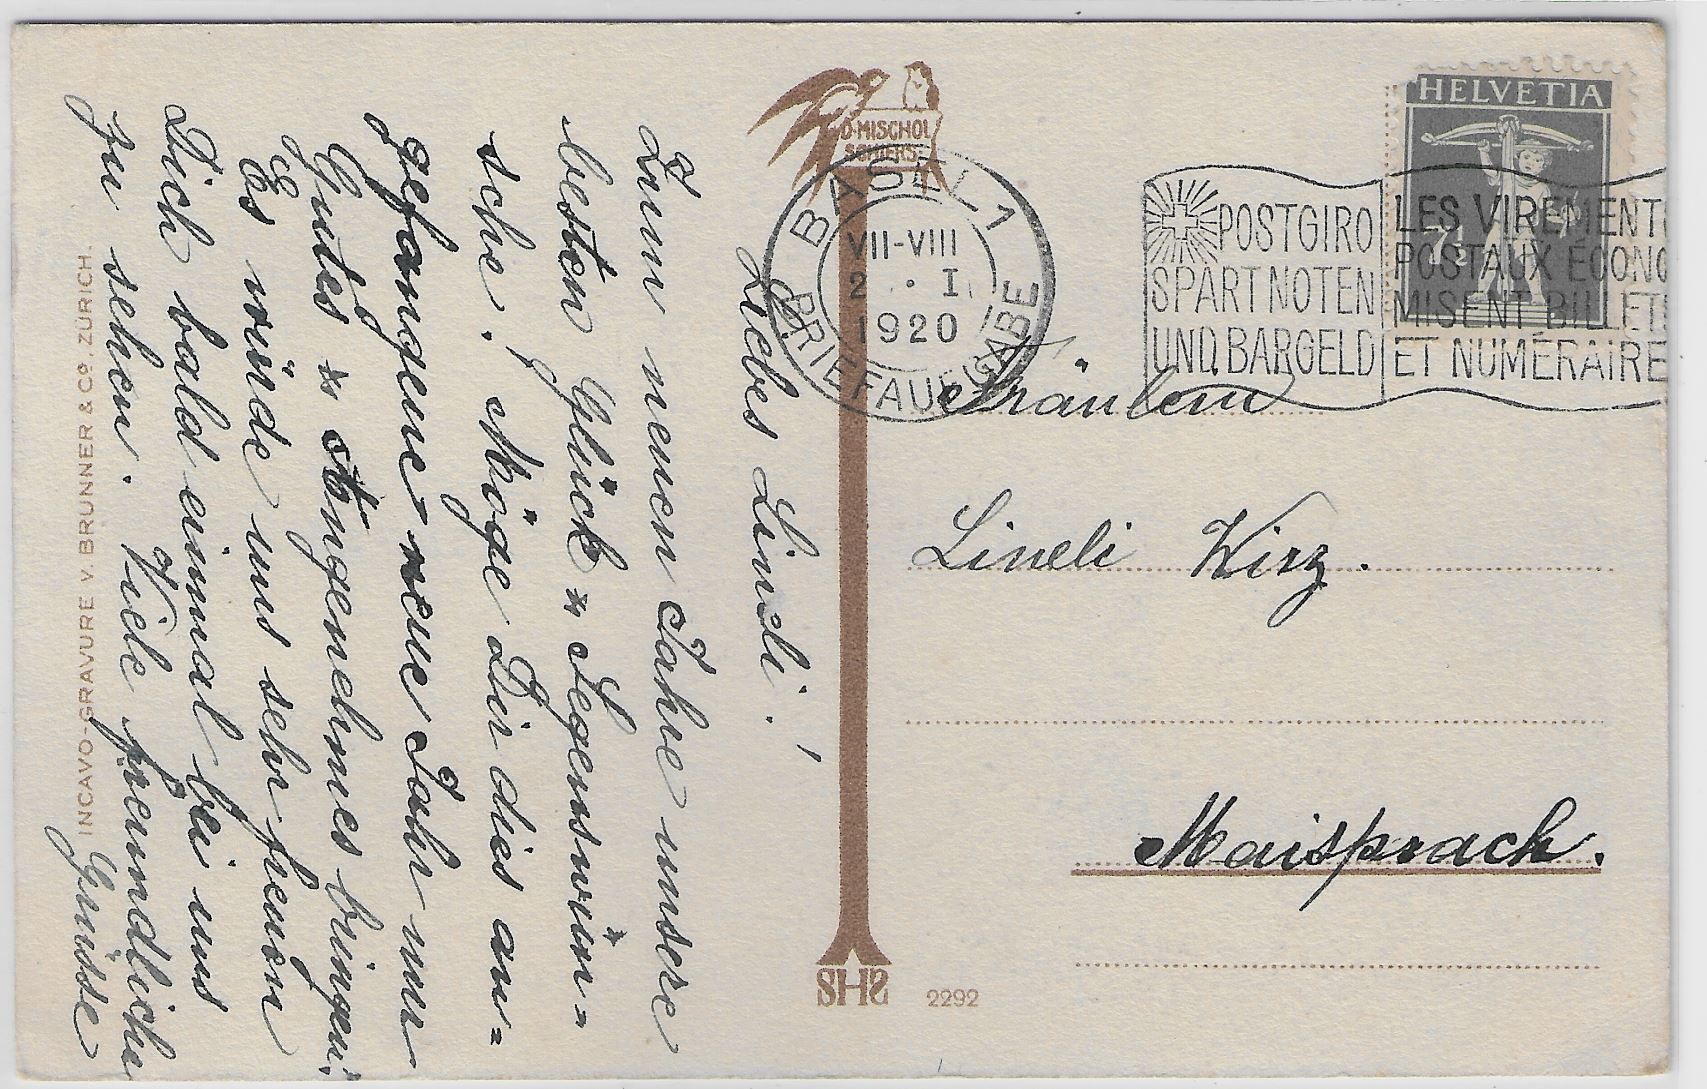 Liebes Lineli!
Zum neuen Jahre unsere
besten Glück- & Segenswün-
sche. Möge Dir dies an-
gefangene neue Jahr nur
Gutes & Angenehmes bringen!
Es würde uns sehr freuen
Dich bald einmal bei uns
zu sehen. Viele freundliche
Grüsse
INCAVO-GRAVURE V. BRUNNER & Co. ZÜRICH.
D. MISCHOL
SCHIERS
BASEL 1
VII-VIII
2 . I
1920
BRIEFAUFGABE
POSTGIRO
SPART NOTEN
UND BARGELD
LES VIREMENTS
POSTAUX ÉCONO
MISENT BILLETS
ET NUMÉRAIRE
HELVETIA
7½
Fräulein
Lineli Wirz.
Maisprach.
SHS
2292